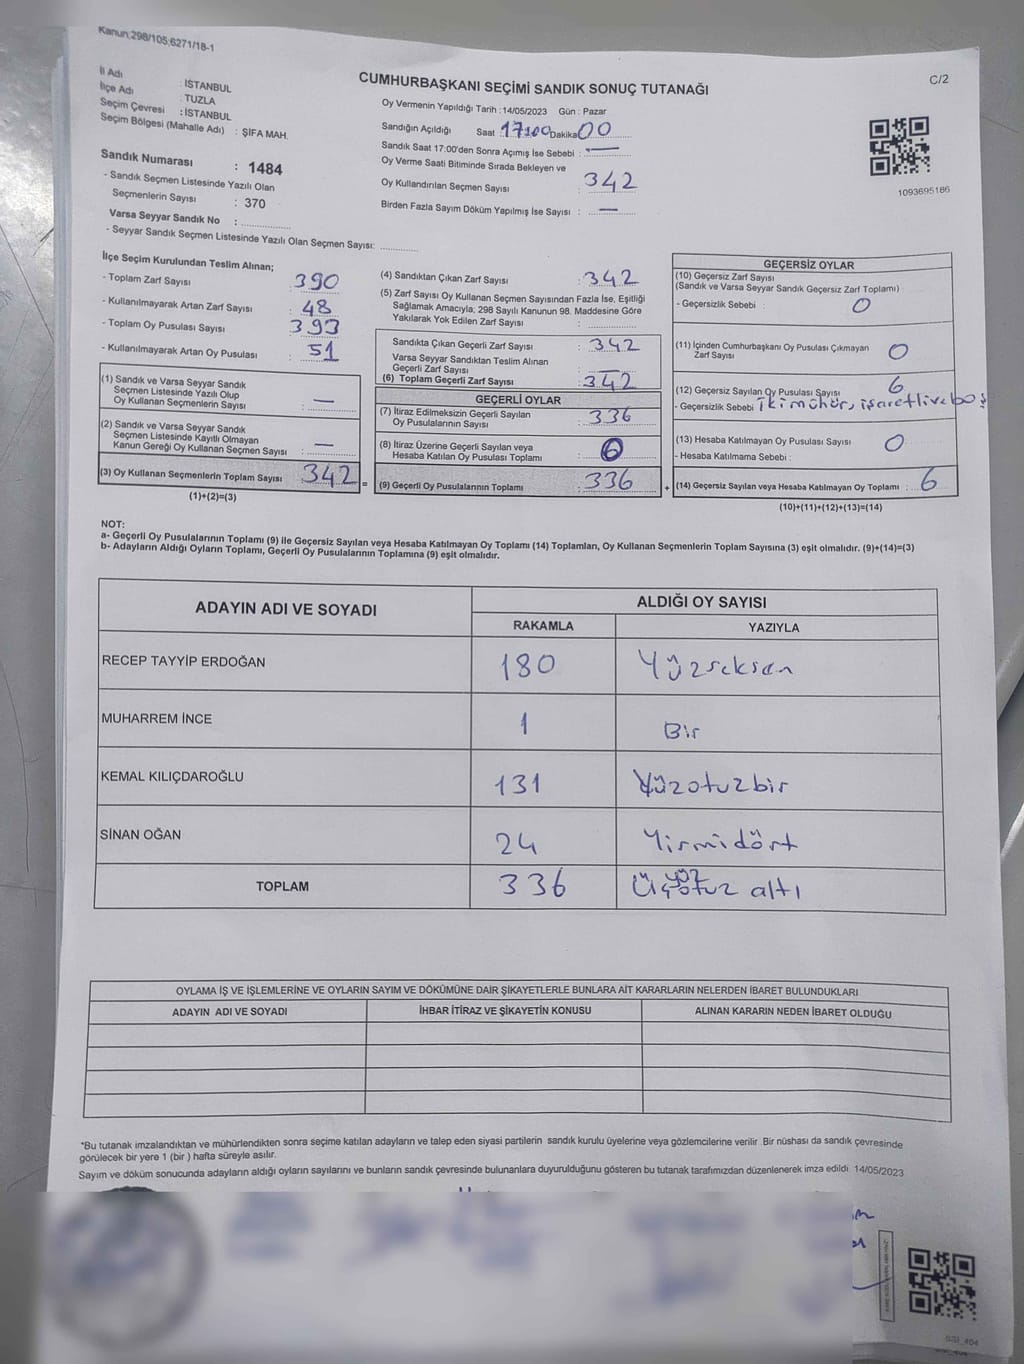 Kanun;298/105;6271/18-1
C/2
CUMHURBAŞKANI SEÇİMİ SANDIK SONUÇ TUTANAĞI
İl Adı : İSTANBUL
İlçe Adı : TUZLA
Seçim Çevresi : İSTANBUL
Seçim Bölgesi (Mahalle Adı) : ŞİFA MAH.
Sandık Numarası : 1484
- Sandık Seçmen Listesinde Yazılı Olan
Seçmenlerin Sayısı : 370
Varsa Seyyar Sandık No : ..............
- Seyyar Sandık Seçmen Listesinde Yazılı Olan Seçmen Sayısı: ...........
Oy Vermenin Yapıldığı Tarih :14/05/2023 Gün : Pazar
Sandığın Açıldığı Saat :17:00 Dakika 00
Sandık Saat 17:00'den Sonra Açımış İse Sebebi : —
Oy Verme Saati Bitiminde Sırada Bekleyen ve
Oy Kullandırılan Seçmen Sayısı : 342
Birden Fazla Sayım Döküm Yapılmış İse Sayısı : —
1093695186
İlçe Seçim Kurulundan Teslim Alınan;
- Toplam Zarf Sayısı : 390
- Kullanılmayarak Artan Zarf Sayısı : 48
- Toplam Oy Pusulası Sayısı : 393
- Kullanılmayarak Artan Oy Pusulası : 51
(1) Sandık ve Varsa Seyyar Sandık
Seçmen Listesinde Yazılı Olup
Oy Kullanan Seçmenlerin Sayısı : —
(2) Sandık ve Varsa Seyyar Sandık
Seçmen Listesinde Kayıtlı Olmayan
Kanun Gereği Oy Kullanan Seçmen Sayısı : —
(3) Oy Kullanan Seçmenlerin Toplam Sayısı : 342 =
(1)+(2)=(3)
(4) Sandıktan Çıkan Zarf Sayısı : 342
(5) Zarf Sayısı Oy Kullanan Seçmen Sayısından Fazla İse, Eşitliği
Sağlamak Amacıyla; 298 Sayılı Kanunun 98. Maddesine Göre
Yakılarak Yok Edilen Zarf Sayısı : ..............
Sandıkta Çıkan Geçerli Zarf Sayısı : 342
Varsa Seyyar Sandıktan Teslim Alınan
Geçerli Zarf Sayısı : —
(6) Toplam Geçerli Zarf Sayısı : 342
GEÇERLİ OYLAR
(7) İtiraz Edilmeksizin Geçerli Sayılan
Oy Pusulalarının Sayısı : 336
(8) İtiraz Üzerine Geçerli Sayılan veya
Hesaba Katılan Oy Pusulası Toplamı : 0
(9) Geçerli Oy Pusulalarının Toplamı : 336 +
GEÇERSİZ OYLAR
(10) Geçersiz Zarf Sayısı
(Sandık ve Varsa Seyyar Sandık Geçersiz Zarf Toplamı)
- Geçersizlik Sebebi : 0
(11) İçinden Cumhurbaşkanı Oy Pusulası Çıkmayan
Zarf Sayısı : 0
(12) Geçersiz Sayılan Oy Pusulası Sayısı : 6
- Geçersizlik Sebebi : iki mühür, işaretli ve boş
(13) Hesaba Katılmayan Oy Pusulası Sayısı : 0
- Hesaba Katılmama Sebebi :
(14) Geçersiz Sayılan veya Hesaba Katılmayan Oy Toplamı : 6
(10)+(11)+(12)+(13)=(14)
NOT:
a- Geçerli Oy Pusulalarının Toplamı (9) ile Geçersiz Sayılan veya Hesaba Katılmayan Oy Toplamı (14) Toplamları, Oy Kullanan Seçmenlerin Toplam Sayısına (3) eşit olmalıdır. (9)+(14)=(3)
b- Adayların Aldığı Oyların Toplamı, Geçerli Oy Pusulalarının Toplamına (9) eşit olmalıdır.
ADAYIN ADI VE SOYADI
ALDIĞI OY SAYISI
RAKAMLA YAZIYLA
RECEP TAYYİP ERDOĞAN 180 Yüzseksen
MUHARREM İNCE 1 Bir
KEMAL KILIÇDAROĞLU 131 Yüzotuzbir
SİNAN OĞAN 24 Yirmidört
TOPLAM 336 Üçyüzotuz altı
OYLAMA İŞ VE İŞLEMLERİNE VE OYLARIN SAYIM VE DÖKÜMÜNE DAİR ŞİKAYETLERLE BUNLARA AİT KARARLARIN NELERDEN İBARET BULUNDUKLARI
ADAYIN ADI VE SOYADI İHBAR İTİRAZ VE ŞİKAYETİN KONUSU ALINAN KARARIN NEDEN İBARET OLDUĞU
*Bu tutanak imzalandıktan ve mühürlendikten sonra seçime katılan adayların ve talep eden siyasi partilerin sandık kurulu üyelerine veya gözlemcilerine verilir .Bir nüshası da sandık çevresinde
görülecek bir yere 1 (bir ) hafta süreyle asılır.
Sayım ve döküm sonucunda adayların aldığı oyların sayılarını ve bunların sandık çevresinde bulunanlara duyurulduğunu gösteren bu tutanak tarafımızdan düzenlenerek imza edildi. 14/05/2023